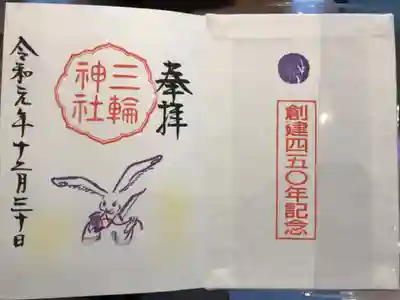 奉拝
三輪
神社
令和元年十二月三十日
創建四五〇年記念